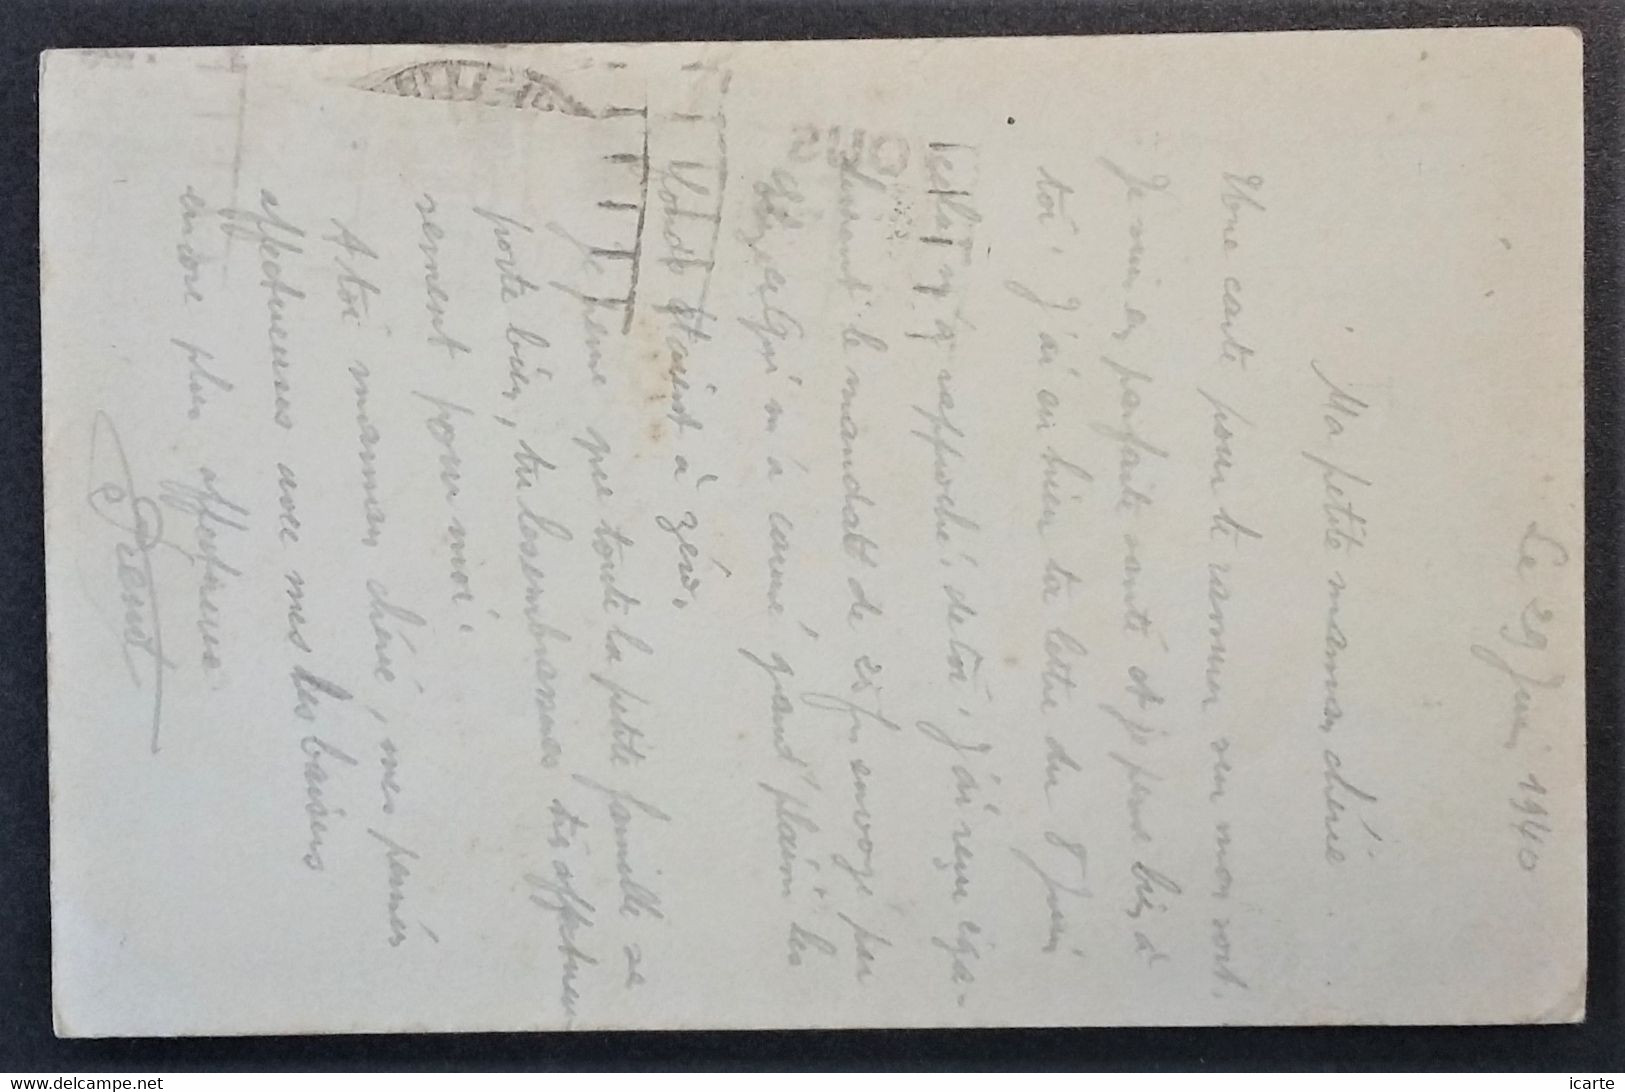 Le 29 Juin 1940
Ma petite maman chérie.
Une carte pour te rassurer sur mon sort.
Je suis en parfaite santé et je pense bien à
toi. J'ai eu bien ta lettre du 8 Juin
et la m'a rapproché de toi. J'ai reçu éga-
lement le mandat de 25 fr envoyé par
qui m'a causé grand plaisir les
fonds étaient à zéro.
Je pense que toute la petite famille se
porte bien, tu les embrasses très affectueu
sement pour moi.
A toi maman chérie, mes pensées
affectueuses avec mes les baisers
encore plus affectueux
www.delcampe.net
icarte